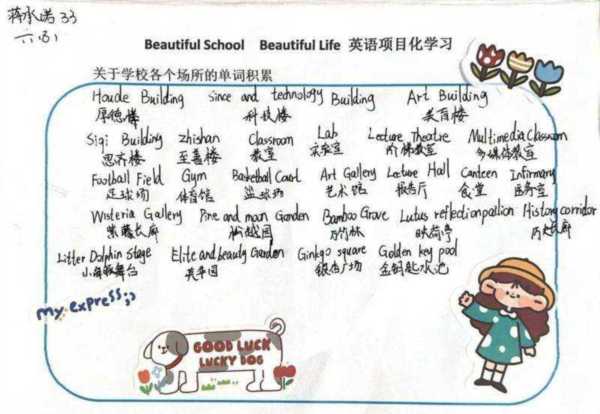 蒋承诺 33
六(3)
Beautiful School Beautiful Life 英语项目化学习
关于学校各个场所的单词积累
Houde Building since and technology Building Art Building
厚德楼 科技楼 美育楼
Siqi Building zhishan Classroom Lab Lecture Theatre Multimedia Classroom
思齐楼 至善楼 教室 实验室 阶梯教室 多媒体教室
Football Field Gym Basketball Court Art Gallery Lecture Hall Canteen Infirmary
足球场 体育馆 篮球场 艺术馆 报告厅 食堂 医务室
Wisteria Gallery Pine and moon Garden Bamboo Grove Lutus reflection pailion History corridor
紫藤长廊 松月园 竹林 映荷亭 历史长廊
Litter Dolphin Stage Elite and beauty Garden Ginkgo square Golden key pool
小海豚舞台 英华园 银杏广场 金钥匙水池
My express
GOOD LUCK
LUCKY DOG